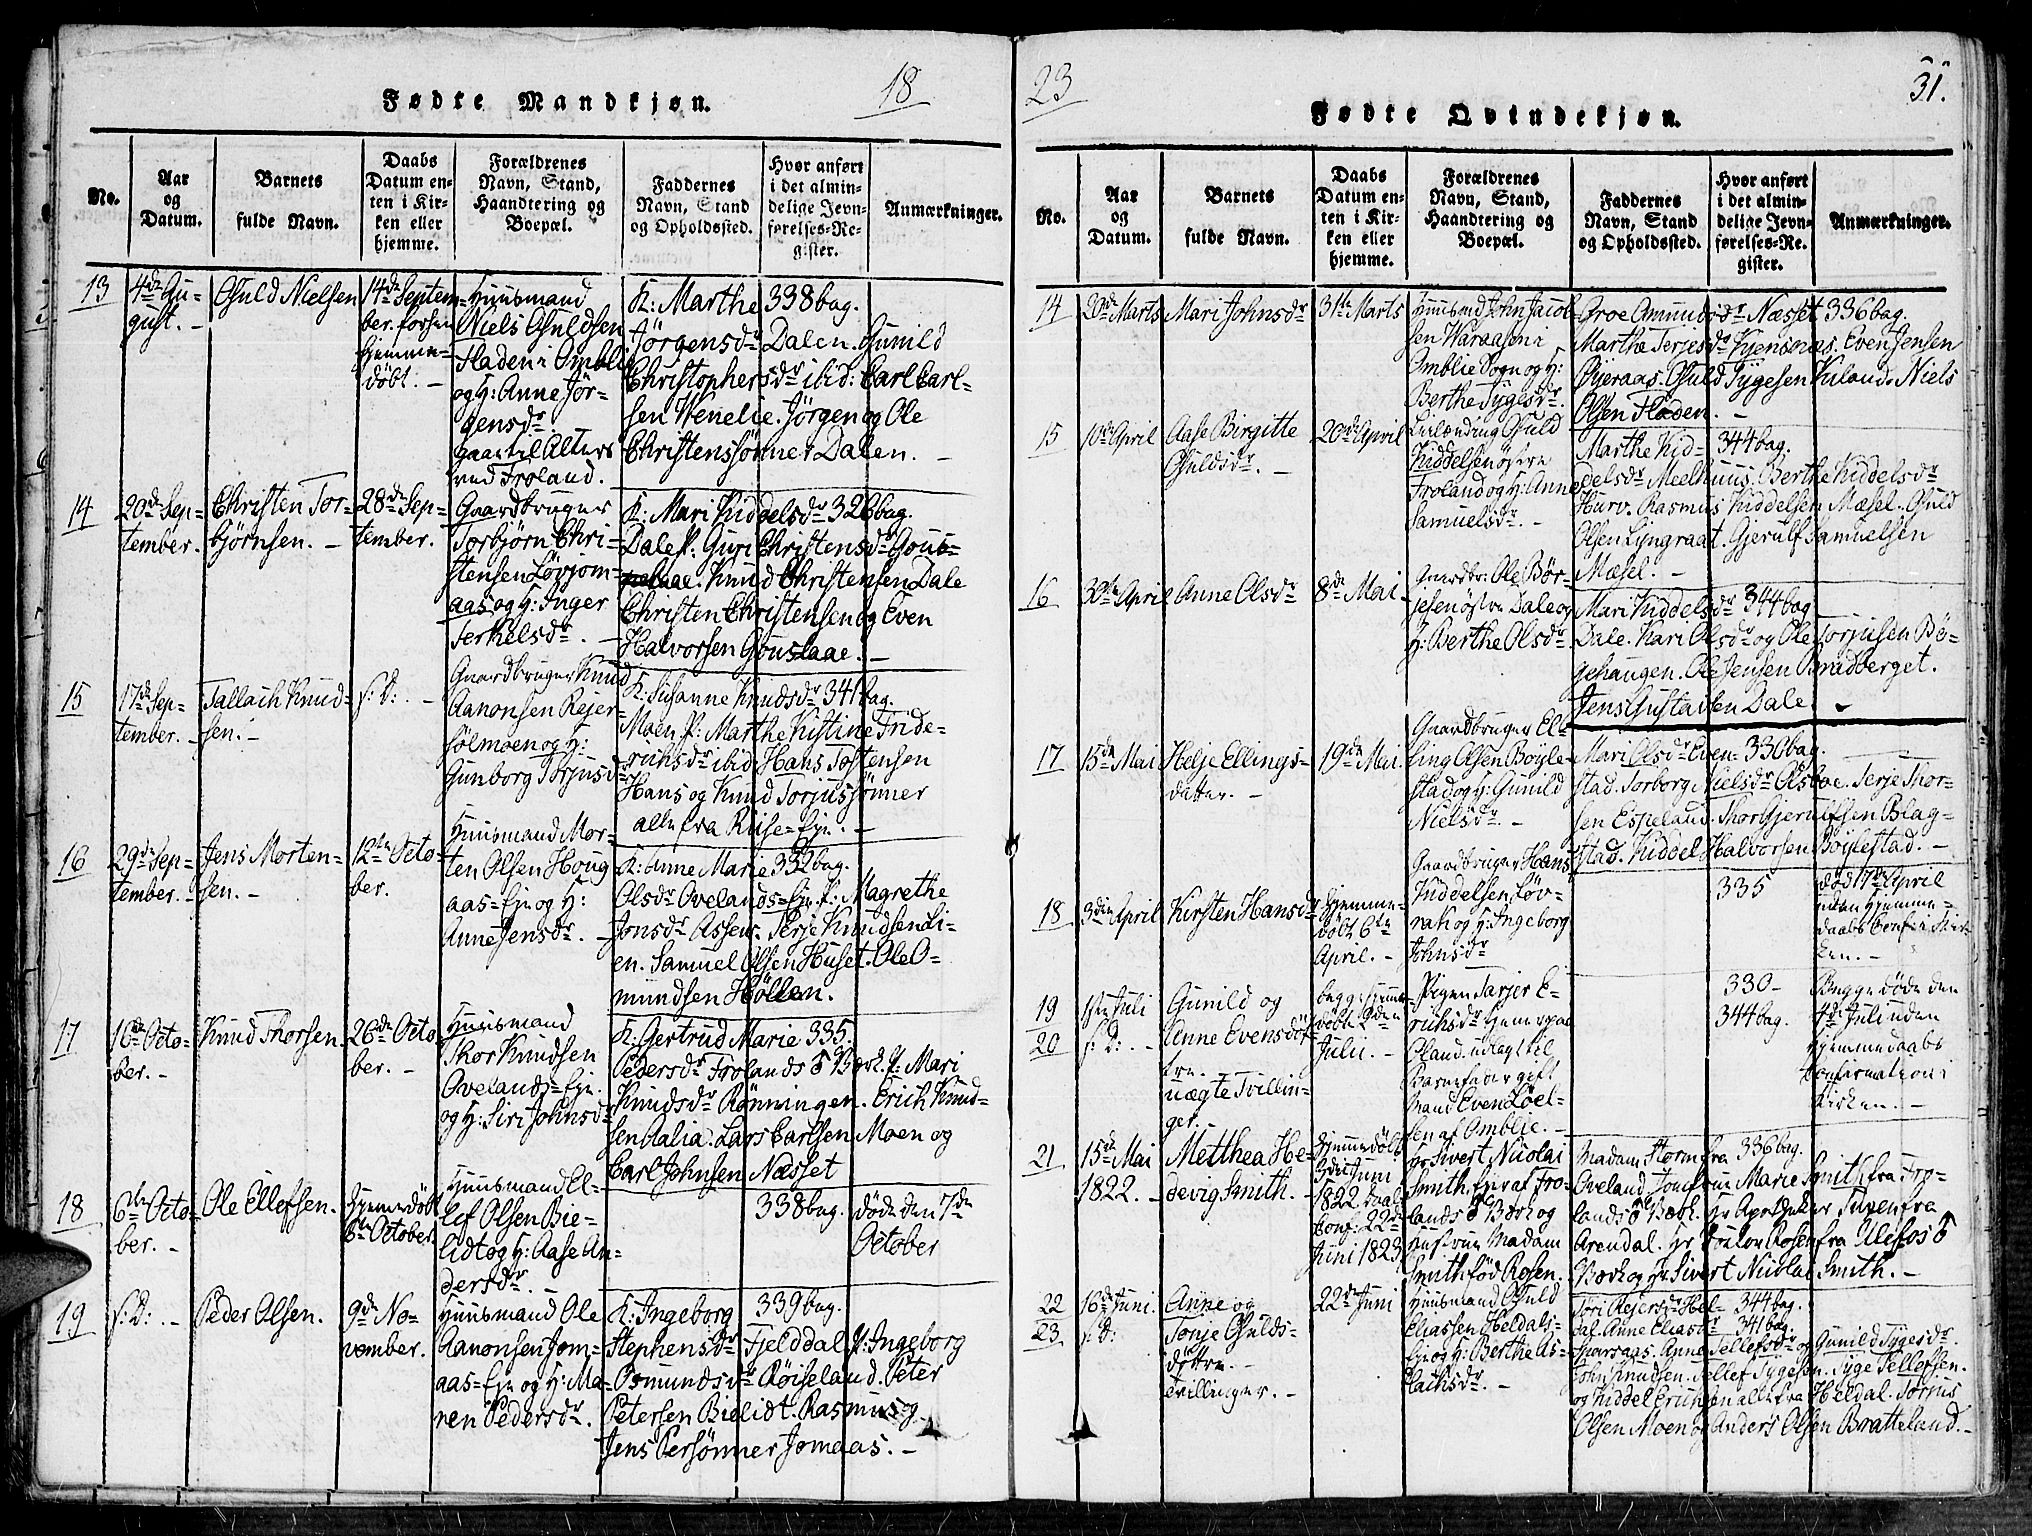 Fødte Mandkjøn.
18
No.
Aar
og
Datum.
Barnets
fulde Navn.
Daabs
Datum en-
ten i Kir-
ken eller
hjemme.
Forældrenes
Navn, Stand,
Haandtering og
Boepæl.
Faddernes
Navn, Stand
og Opholdssted.
Hvor anført
i det almin-
delige Jevn-
førelses-Re-
gister.
Anmærkninger.
13
4de Au-
gust. -
Osuld Nielsen
14de Septem-
ber forsen
hjemme-
døbt. -
Huusmand
Niels Osuldsen
Fladen i Omblie
og H: Anne Jör-
gensdr.
gaar til Alters
ved Froland.
K: Marthe 338 bag.
Jörgensdr Dalen. Gunild
Christophersdr ibid: Carl Carl-
sen Wenelie. Jörgen og Ole
Christenssönner Dalen. -
14
20de Sep-
tember.
Christen Tor-
bjørnsen. -
28de Sep-
tember.
Gaardbruger
Torbjørn Chri-
stensen Lövjom-
aas og H: Inger
Terkelsdr. -
K: Mari Kiddelsdr 326 bag.
Dale P: Guri Christensdr Gous-
Knud Christensen Dale
Christen Christensen og Even
Halvorsen Gouslaae. -
15
17de Sep-
tember. -
Tallach Knud-
sen. -
s: D: -
Gaardbruger Knud
Aanonsen Rejer-
sölmoen og H:
Gunborg Torjusdr
K: Susanne Knudsdr 341 bag.
Moen P: Marthe Kistine Fride-
richsdr ibid Hans Tostensen
Hans og Knud Torjussönner
alle fra Riise-Eje. -
16
29de Sep-
tember. -
Jens Morten-
sen. -
12te Octo-
ber.
Huusmand Mor-
ten Olsen Houg-
aas-Eje og H:
Anne Jensdr. -
K: Anne Marie 332 bag.
Olsdr Ovelands-Eje P: Magrethe
Jonsdr Assen. Terje Knudsen Li-
en. Samuel Olsen Huset. Ole O-
mundsen Höllen.
17
16de Octo-
ber. -
Knud Thorsen.
26de Octo-
ber. -
Huusmand
Thor Knudsen
Ovelands-Eje.
og H: Siri Johnsdr
K: Gertrud Marie 335.
Pedersdr Frolands Værk. P: Mari
Knudsdr Rönningen. Erich Knud-
sen Aalia. Lars Carlsen Moen og
Carl Johnsen Næsset
18
6te Octo-
ber. -
Ole Ellefsen.
Hjemmedöbt
6te October.
Huusmand El-
lef Olsen Bie-
lidt og H: Aase An-
dersdr. -
338 bag.
døde den 7de
October
19
s: D: -
Peder Olsen.
9de No-
vember.
Huusmand Ole
Aanonsen Jom-
aas-Eje og H: Ma-
ren Pedersdr.
K: Ingeborg 339 bag.
Stephensdr Fjelddal P: Ingeborg
Osmundsdr Röiseland. Peter
Petersen Bielidt. Rasmus og
Jens Persönner Jomaas. -
23
31.
Fødte Qvindekjøn.
No.
Aar
og
Datum.
Barnets
fulde Navn.
Daabs
Datum en-
ten i Kir-
ken eller
hjemme.
Forældrenes
Navn, Stand,
Haandtering og
Boepæl.
Faddernes
Navn, Stand
og Opholdssted.
Hvor anført
i det almin-
delige Jevn-
førelses-Re-
gister.
Anmærkninger.
14
20de Marts
Mari Johnsdr
31te Marts
Huusmd John Jacob-
sen Waraasen i
Omblie Sogn og H:
Berthe Tygesdr.
Groe Omundsdr Næsset 336 bag.
Marthe Terjesdr Kjensnæs. Even Jensen
Øyeraas. Osuld Tygesen Kiland. Niels
Olsen Fladen. -
15
10de April
Aase Birgitte
Osuldsdr. -
20de April
Osuld
Kiddelsen östre
Froland og H: Anne
Samuelsdr. -
Marthe Kid- 344 bag.
delsdr Meelhuus. Berthe Kiddelsdr
Hurv. Rasmus Kiddelsen Mæsel. Osuld
Olsen Lyngraat. Gjerulf Samuelsen
Mæsel. -
16
30te April
Anne Olsdr
8de Mai
Gaardbr: Ole Bör-
jesen östre Dale og
H: Berthe Olsdr.
Mari Kiddelsdr 344 bag
Dale. Kari Olsdr og Ole Torjusen Bö-
gehaugen. Ole Jensen Bradberget.
Jens Gustavsen Dale. -
17
15de Mai
Helje Ellings-
datter. -
19de Mai
Gaardbruger El-
ling Olsen Böyle-
stad og H: Gunild
Nielsdr. -
Mari Olsdr Even- 330 bag.
stad. Torborg Nielsdr Olsboe. Terje Thor-
sen Espeland. Thor Gjerulfsen Blag-
stad. Kiddel Halvorsen Böylestad. -
18
3die April
Kirsten Hansdr
Hjemme-
døbt 6te
April. -
Gaardbruger Hans
Kiddelsen Løv-
rak og H: Ingeborg
Johnsdr
335
død 17de April
uden Hjemme-
daabs Conf: i Kir-
ken. -
19
20
1ste Juli
s: D: -
Gunild og
Anne Evensdöt-
tre.
uægte Tvillin-
ger.
begge hjemme-
døbt 2den
Julii. -
Pigen Tarjer E-
richsdr hjemme paa
Öland. udlagt til
Barnefader gift
Mand Even Löel-
sen af Omblie. -
330-
344 bag.
Begge døde den
4de Juli uden
Hjemmedaabs
Confirmation i
Kirken. -
21
15de Mai
1822. -
Metthea He-
devig Smith. -
Hjemmedöbt
3die Juni
1822. Daab
Conf: 22de
Juni 1823
Hr Sivert Nicolai
Smith, Ejer af Fro-
lands Værk og
Hustrue Madam
Smith, fød Rosen.
Madam Storm fra 336 bag.
Oveland. Jomfrue Marie Smith fra Fro-
lands Værk. Hr Apotheker Tuven fra
Arendal. Hr Rosen fra Ulefos
Værk og Hr Sivert Nicolai Smith. -
22
23
16de Juni.
s: D:
Anne og
Tonje Osulds-
döttre. -
Tvillinger. -
22de Juni
Huusmand Osuld
Eliassen Heldals-
Eje og H: Berthe As-
lachsdr. -
Töri Rejersdr Hel- 344 bag.
dal. Anne Eliasdr 341 bag.
Anne Tellefsdr og Gunild Tygesdr.
John Knudsen. Tellef Tygesen. Tyge Tellefsen.
og Kiddel Erichsen alle fra Heldal. Torjus
Olsen Moen og Anders Olsen Bratteland. -